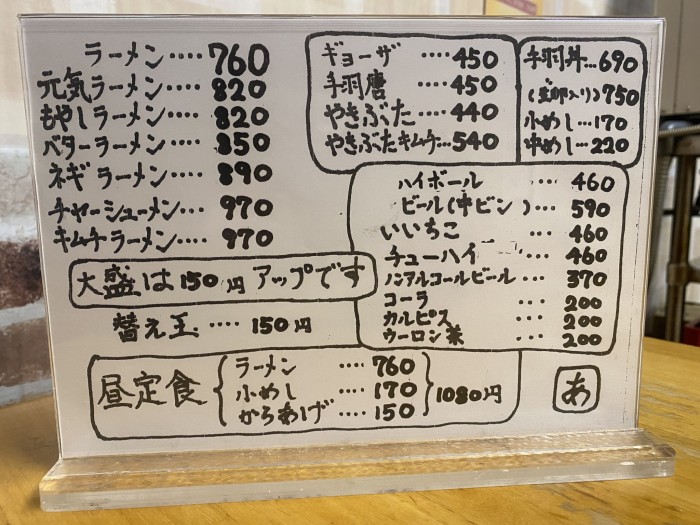 ラーメン‥‥ 760
元気ラーメン‥‥ 820
もやしラーメン‥‥ 820
バターラーメン‥‥ 850
ネギラーメン‥‥ 890
チャーシューメン‥‥ 970
キムチラーメン‥‥ 970
大盛は150円アップです
替え玉‥‥ 150円
昼定食
ラーメン ‥‥ 760
小めし ‥‥ 170
からあげ ‥‥ 150
1080円
ギョーザ ‥‥450
手羽唐 ‥‥450
やきぶた ‥‥440
やきぶたキムチ…540
手羽丼…690
(玉卵入り)750
小めし…170
中めし…220
ハイボール … 460
ビール(中ビン)… 590
いいちこ … 460
チューハイ … 460
ノンアルコールビール … 370
コーラ … 200
カルピス … 200
ウーロン茶 … 200
あ